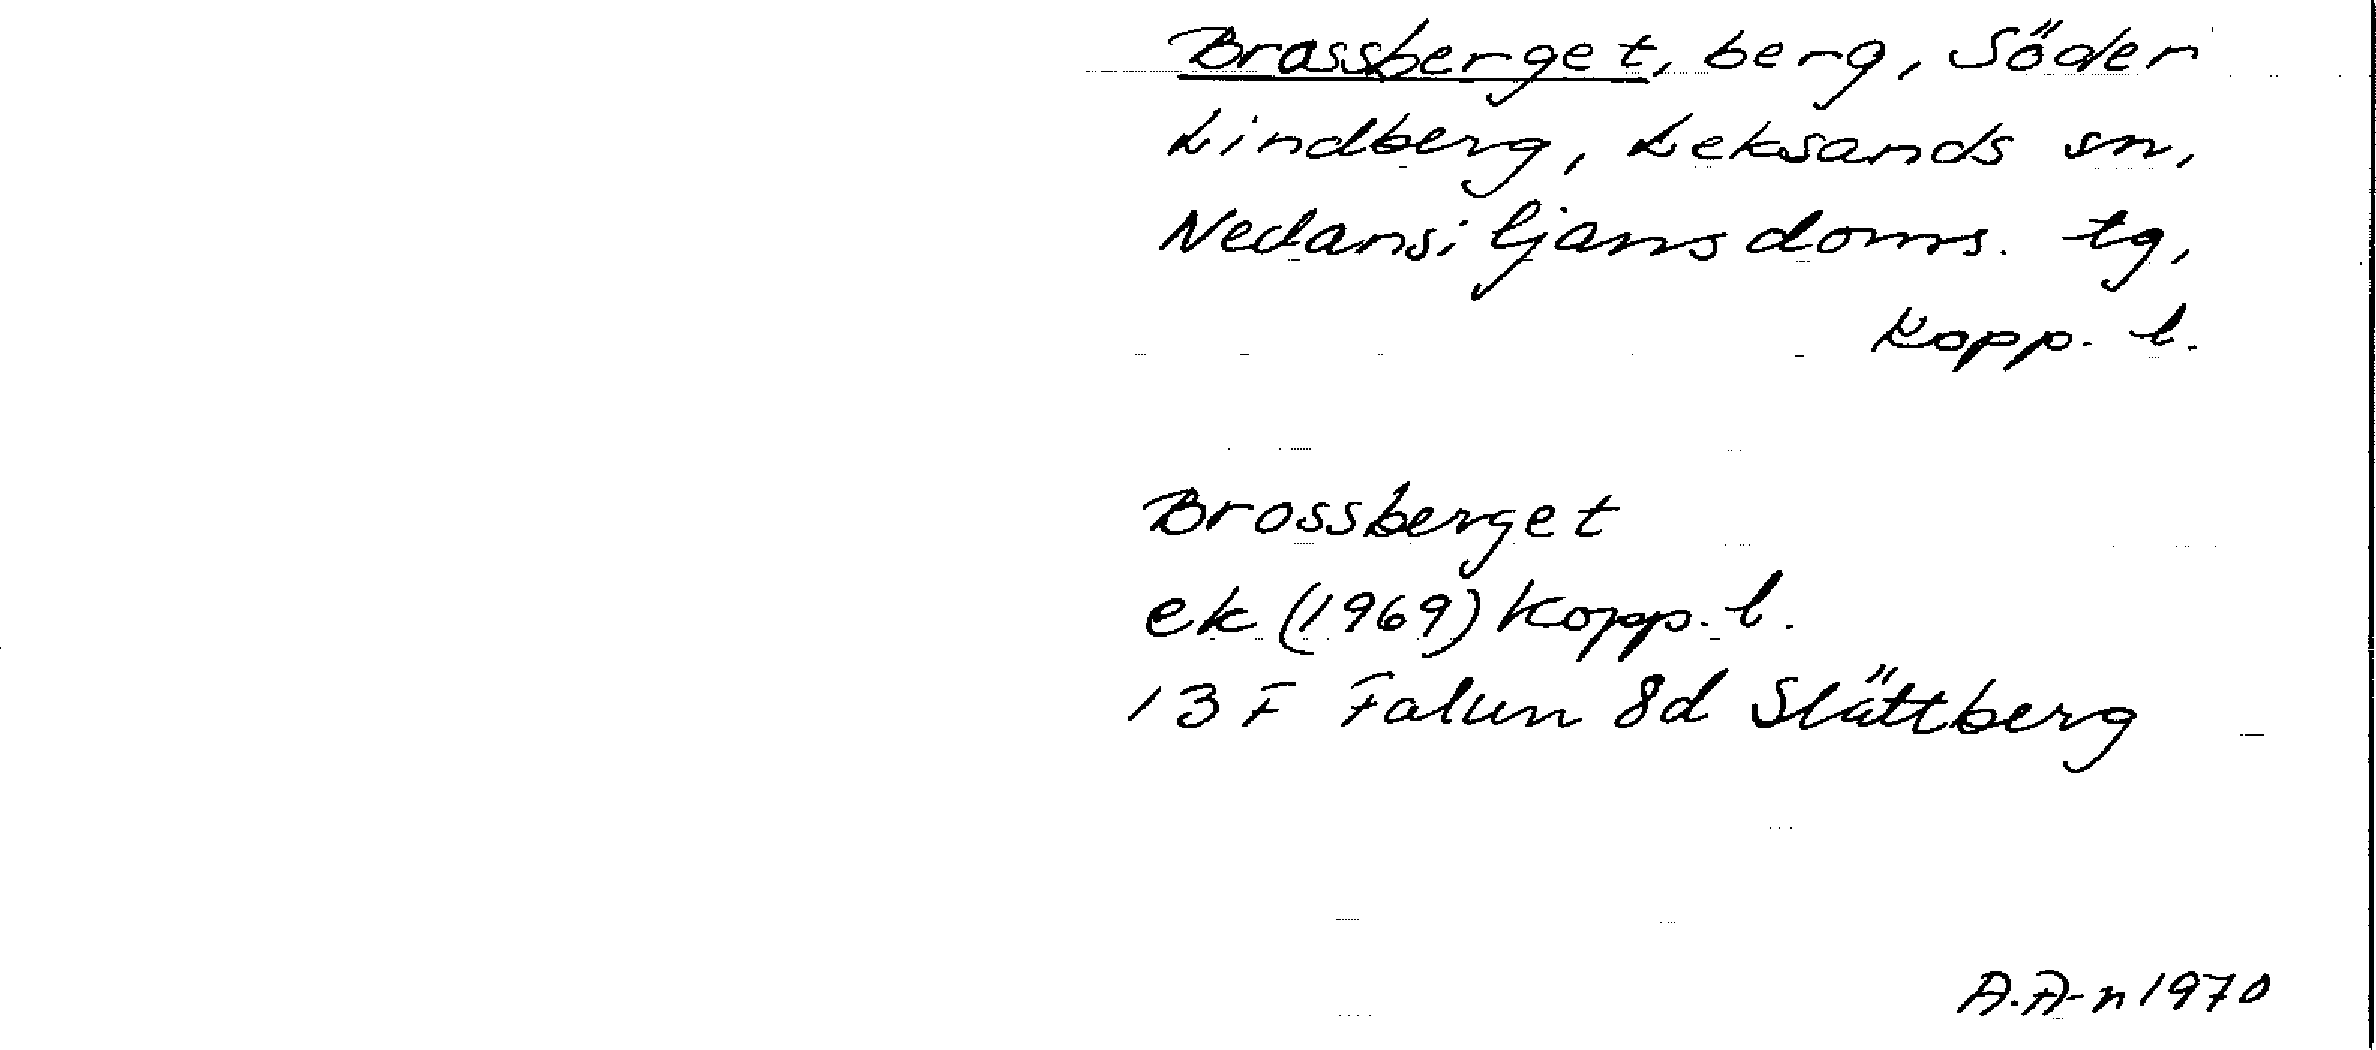 Brassberget, berg, Söder
Lindberg, Leksands sn,
Nedansiljans doms. tg,
Kopp. l.
Brossberget
ek (1969) Kopp. l.
13 F Falun 8d Slättberg
A.A-n 1970